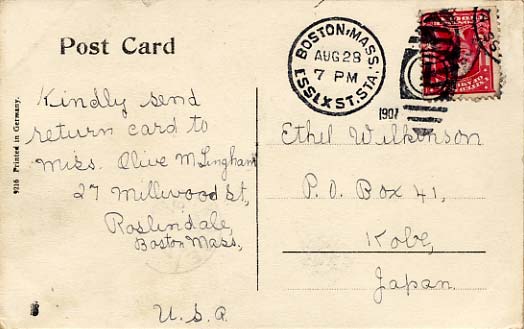 Post Card
BOSTON, MASS.
AUG 28
7 PM
ESSEX ST. STA.
1907
9216 Printed in Germany.
Kindly send
return card to
Miss. Olive M Lingham
27 Milliwood St,
Roslindale,
Boston Mass,
U.S.A
Ethel Wilkinson
P.O. Box 41,
Kobe,
Japan